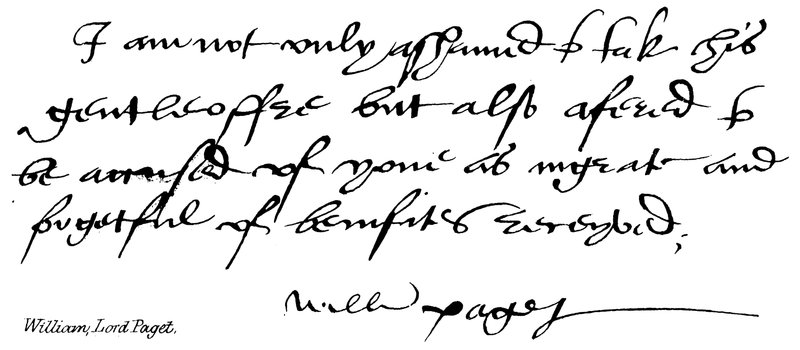 I am not only asshamed to take this
gentle offre but also afered to
be accused of youe as ingrate and
forgetful of benifites receeyvid;
Will'm paget
William, Lord Paget.